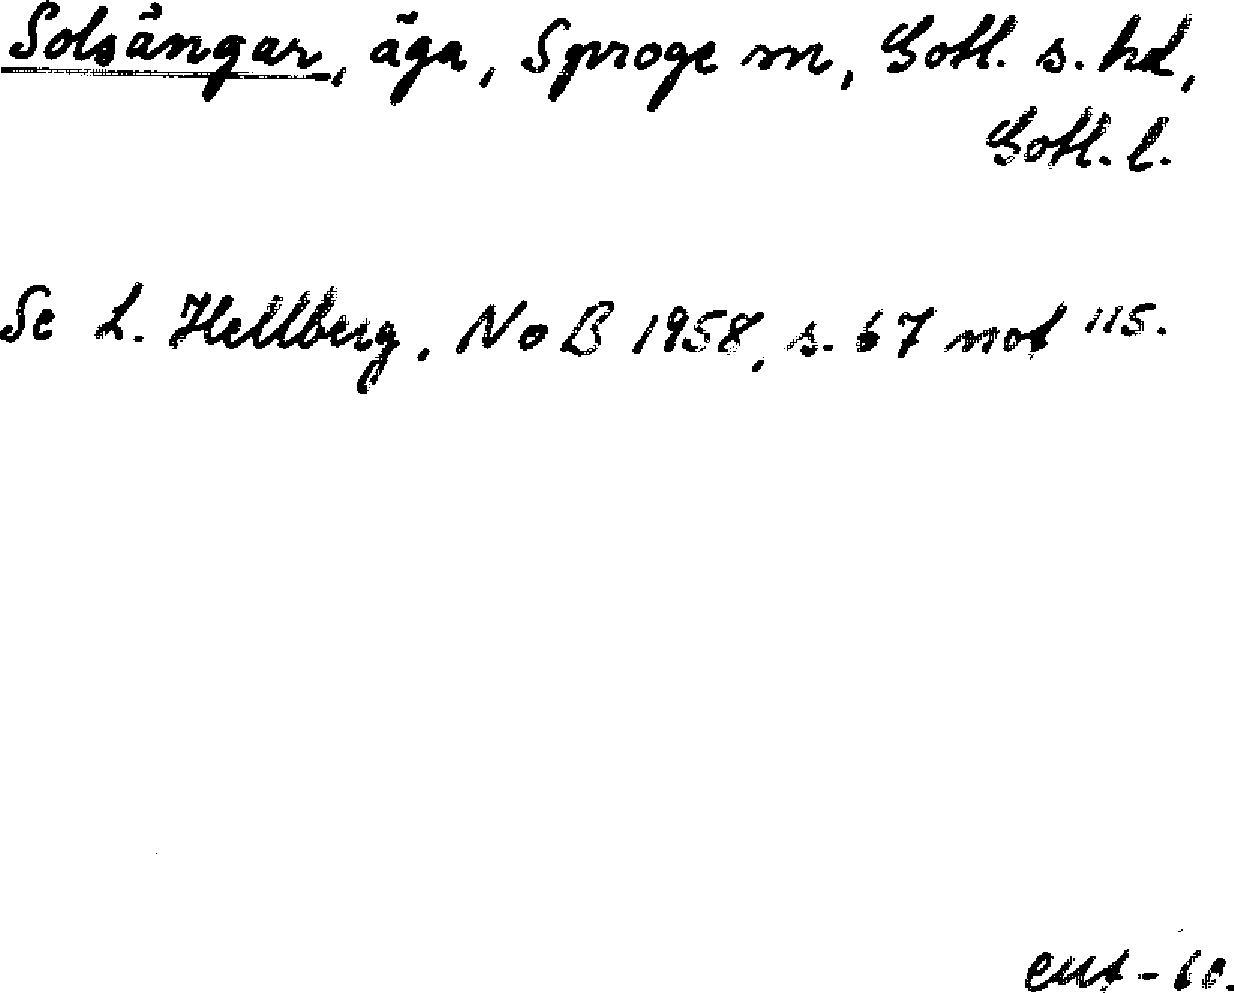 Solsängar, äga, Sproge sn, Gotl. s. hd,
Gotl. l.
Se L. Hellberg, NoB 1958, s. 67 not 115.